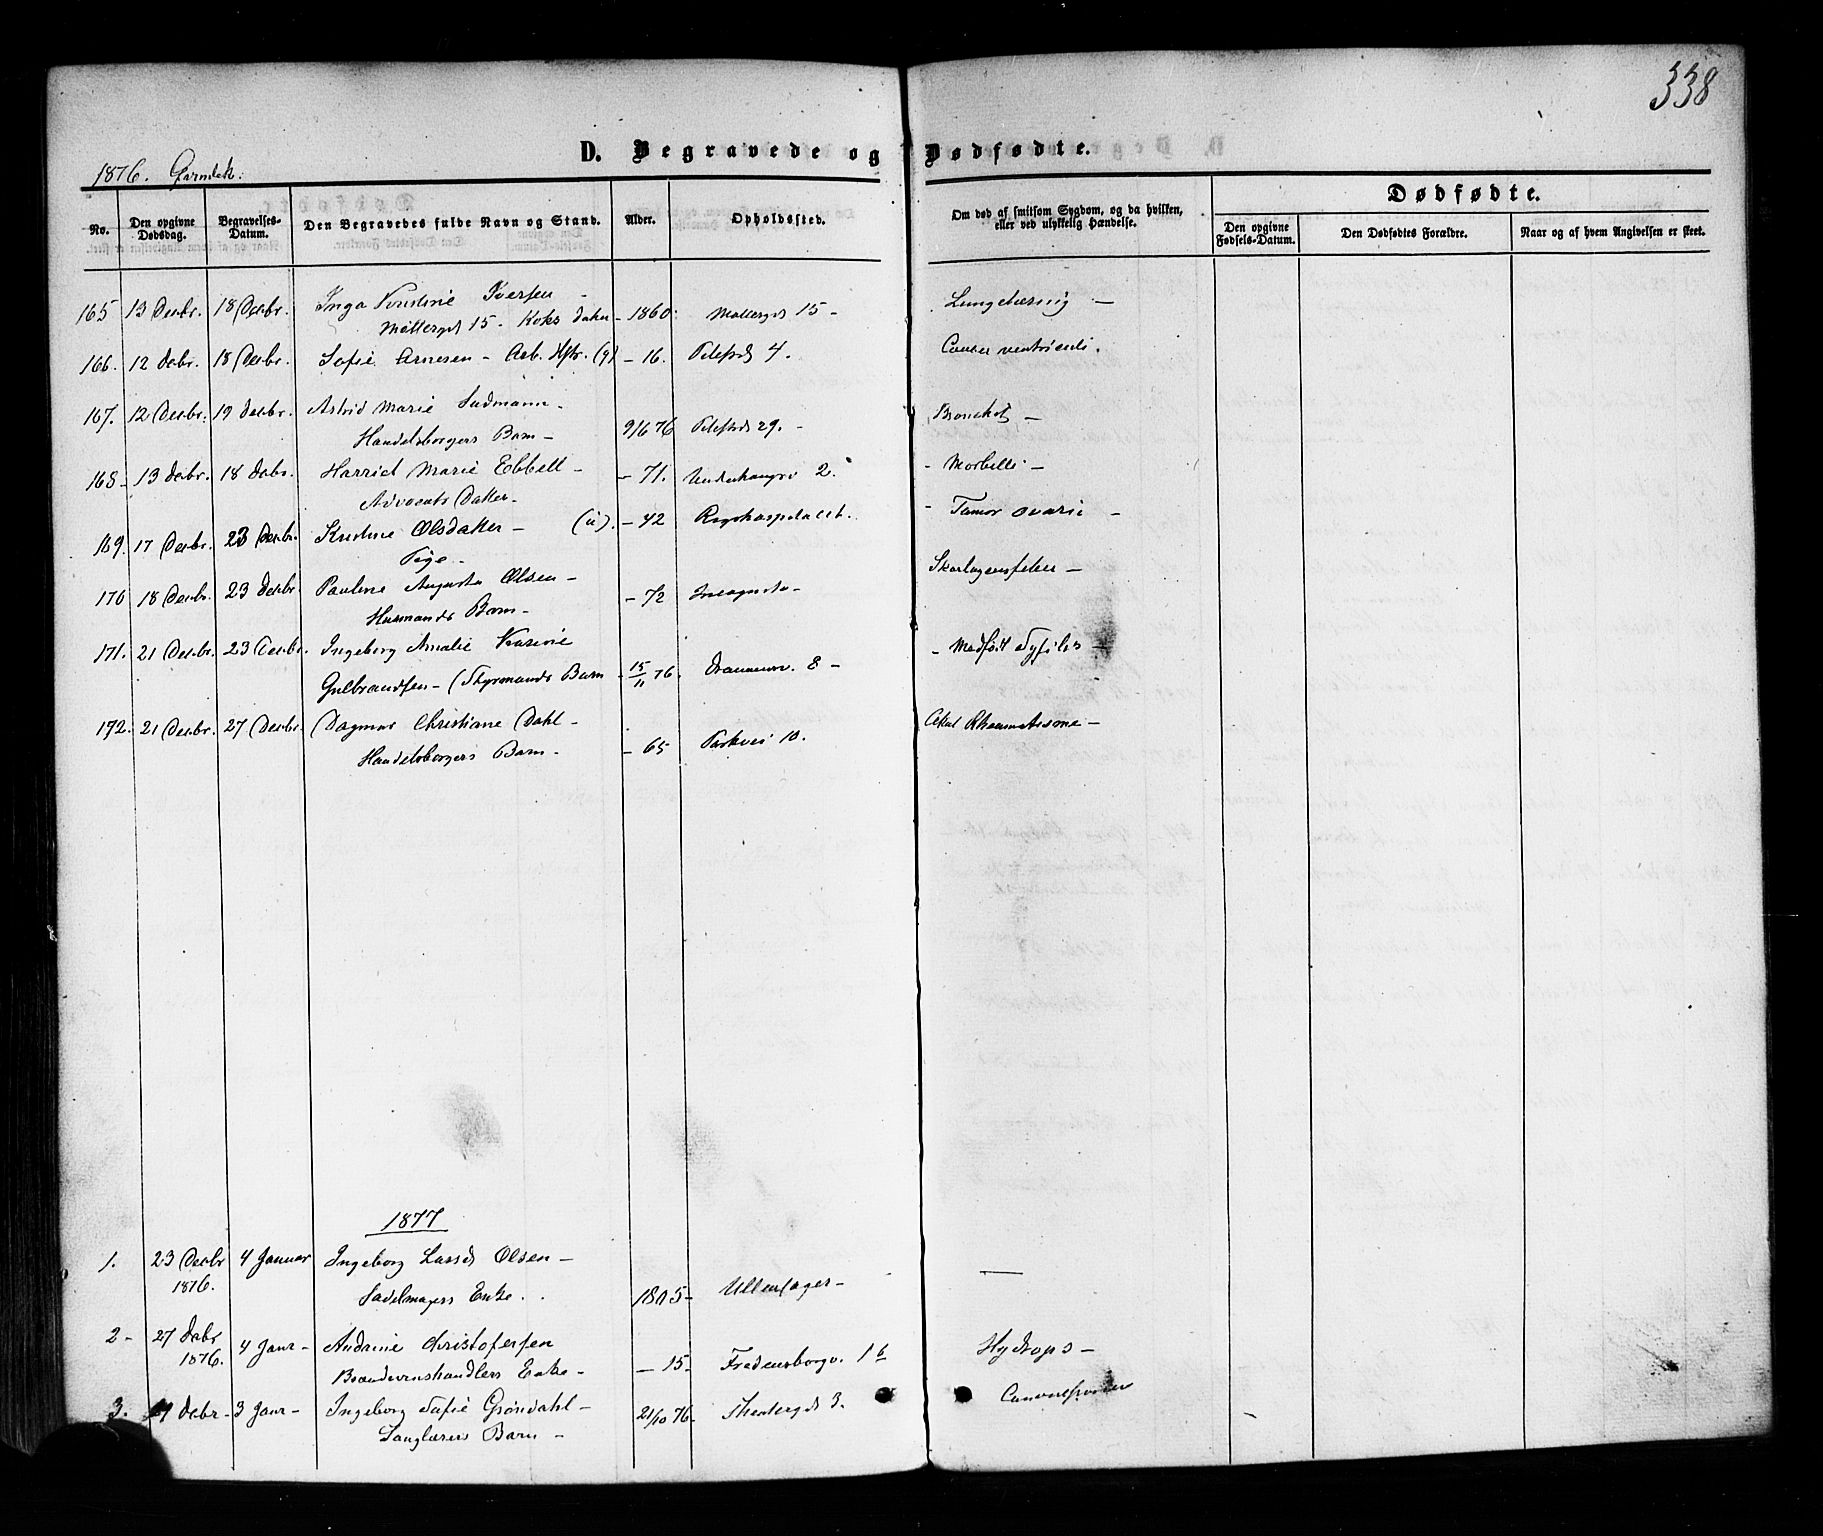 338
D. Begravede og Dødfødte.
1876. Qvindek:
No.
Den opgivne Dødsdag.
Begravelses-Datum.
Den Begravedes fulde Navn og Stand.
Alder.
Opholdssted.
Om død af smitsom Sygdom, og da hvilken, eller ved ulykkelig Hændelse.
Dødfødte.
Den opgivne Fødsels-Datum.
Den Dødfødtes Forældre.
Naar og af hvem Angivelsen er skeet.
165 13 Decbr. 18 Decbr. Inga Kristine Iversen –
Møllergd 15 – Koks – 1860. Møllergd 15 – Lungetæring –
166. 12 Decbr. 18 Decbr. Sofie Arnesen – Arb. Hstr. (g) – 16. Pilestrd 4. Cancer ventriculi.
167. 12 Decbr. 19 Decbr. Astrid Marie –
Handelsborgers Barn – 9/6 76 Pilestrd 29. – Bronchit –
168 – 13 Decbr. 18 Decbr. Harriet Marie Ebbell – – 71. 2. – Morbilli –
Advocats Datter –
169. 17 Decbr. 23 Decbr. Kristine Olsdatter – (u). – 42 Rigshospitalet. – Tumor ovarii –
Pige –
170 18 Decbr. 23 Decbr. Pauline Augusta Olsen – – 72 Incognito – Skarlagensfeber –
Husmands Barn –
171. 21 Decbr. 23 Decbr. Ingeborg Amalie Karine – Medfødt Syfilis –
Gulbrandsen – (Styrmands Barn – 15/11 76. Drammenv. 8 –
172. 21 Decbr. 27 Decbr. Dagmar Christiane Dahl – Akut Rheumatisme –
Handelsborgers Barn – – 65 Parkvei 10.
1877
1. 23 Decbr 1876. 4 Januar Ingeborg Olsen –
Sadelmagers Enke. 1805 – Ullensager –
2 – 27 Decbr 1876. 4 Janr – Andrine Christofersen Hydrops –
Brændevinshandlers Enke – – 15 – Fredensborgv. 1 b
3. Decbr – 3 Janr – Ingeborg Sofie Grøndahl – 21/10 76 – Theatergd 3.
Sanglærers Barn –